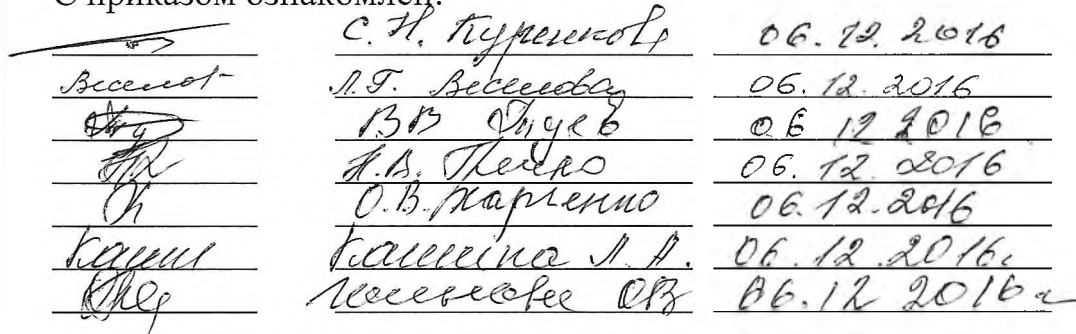 С приказом ознакомлен:
С. Н. Куренков 06.12.2016
Веселов Л.Г. Веселова 06.12.2016
ВВ 06 12 2016
Н.В. 06.12.2016
О.В. Харченко 06.12.2016
Кашин Кашина Л.А. 06.12.2016г
ОВ 06.12 2016г